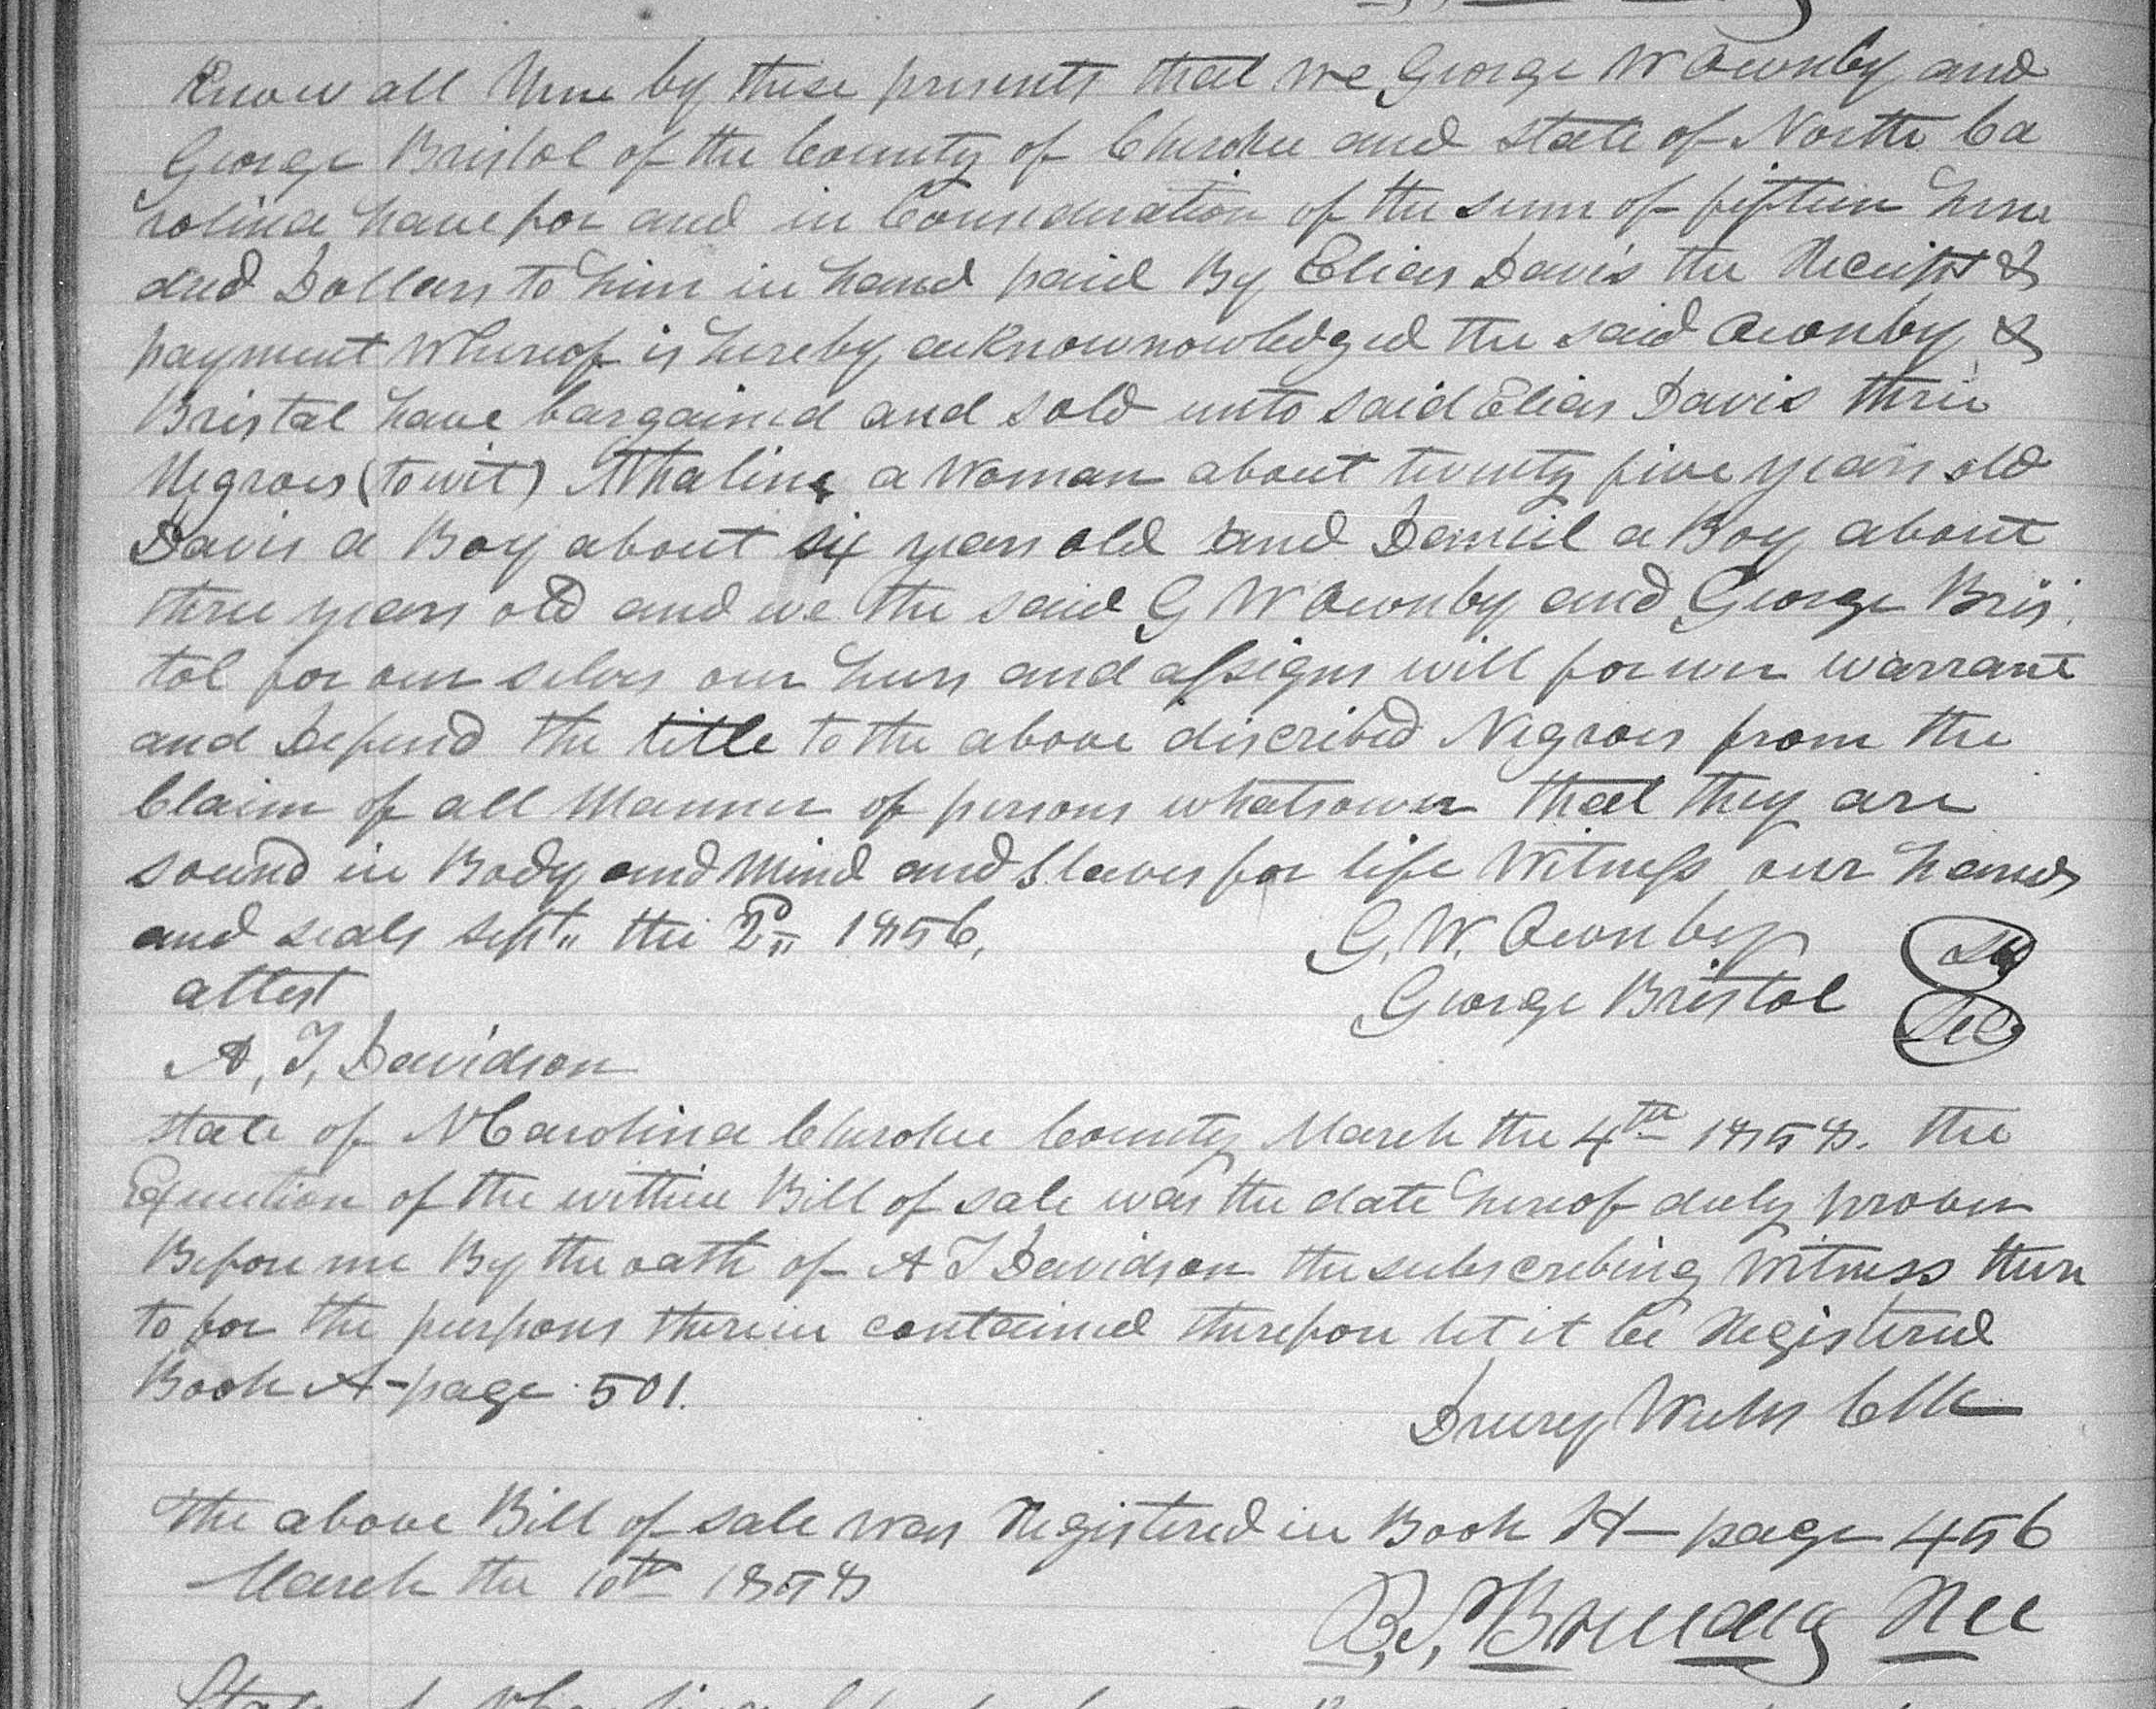 Know all Men by these presents that we George W Ownby and
George Bristol of the County of Cherokee and state of North Ca
rolina have for and in Consideration of the sum of fifteen hun
dred Dollars to him in hand paid By Elias Davis the Receipt &
payment Whereof is hereby acknownowledged the said Ownby &
Bristol have bargained and sold unto said Elias Davis three
Negroes (towit) a Woman about twenty five years old
Davis a Boy about six years old and Daniel a Boy about
three years old and we the said G W Ownby and George Bris
tol for our selves our heirs and assigns will forever warrant
and Defend the title to the above discribed Negroes from the
Claim of all Manner of persons whatsoever that they are
sound in Body and Mind and Slaves for life Witness our hands
and seals sept" the 1856.
G. W. Ownby
George Bristol
attest
A, T, Davidson
state of N Carolina Cherokee County March the 4th 1858. the
Execution of the within Bill of sale was the date hereof duly proven
Before me By the oath of A T Davidson the subscribing Witness there
to for the purposes therein contained therefore let it be Registered
Book A-page 501.
Drury Clk
the above Bill of sale was Registered in Book H- page 456
March the 10th 1858